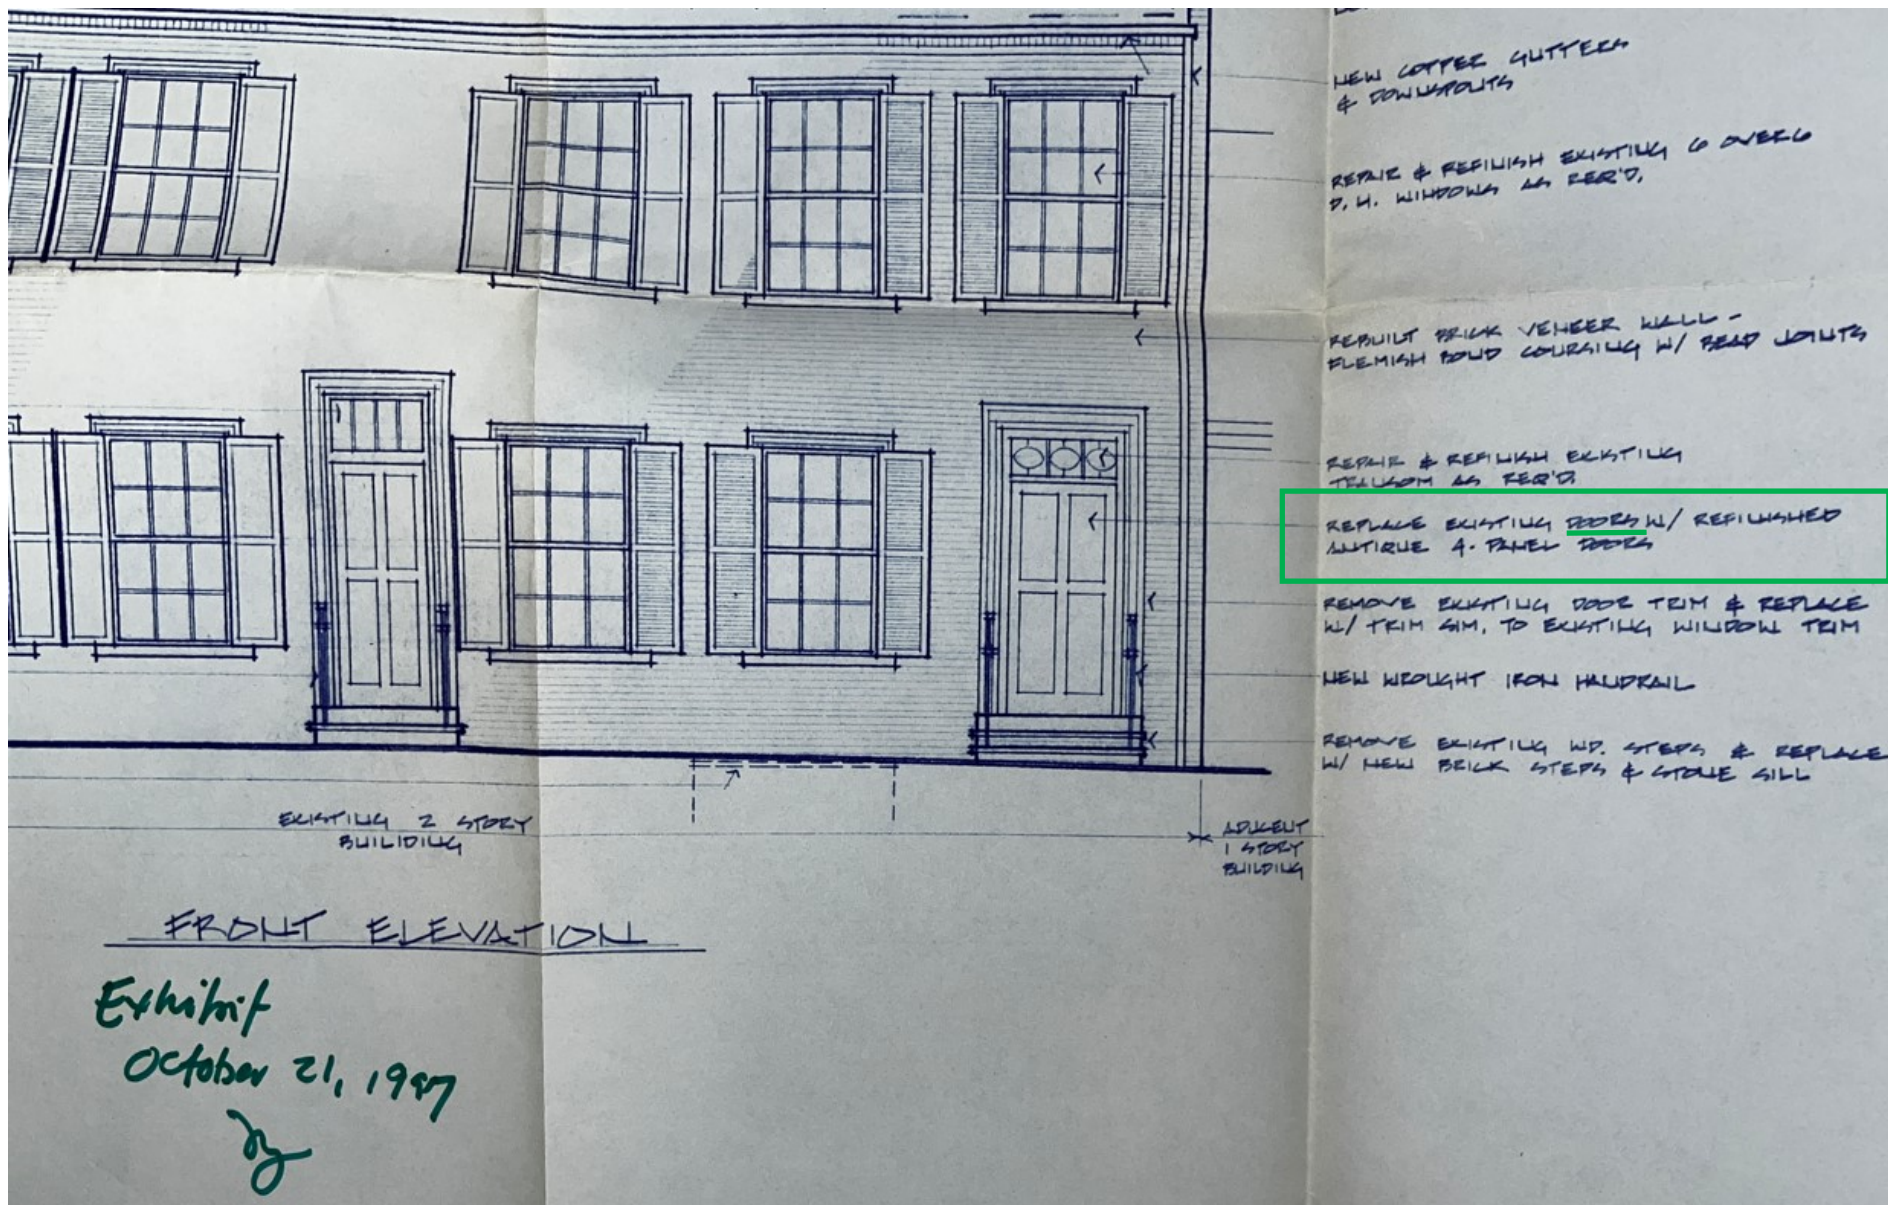 NEW COPPER GUTTERS
& DOWNSPOUTS
REPAIR & REFINISH EXISTING 6 OVER 6
D.H. WINDOWS AS REQ'D.
REBUILT BRICK VENEER WALL -
FLEMISH BOND COURSING W/ BEAD JOINTS
REPAIR & REFINISH EXISTING
TRANSOM AS REQ'D.
REPLACE EXISTING DOORS W/ REFINISHED
ANTIQUE 4-PANEL DOORS
REMOVE EXISTING DOOR TRIM & REPLACE
W/ TRIM SIM. TO EXISTING WINDOW TRIM
NEW WROUGHT IRON HANDRAIL
REMOVE EXISTING WD. STEPS & REPLACE
W/ NEW BRICK STEPS & STONE SILL
EXISTING 2 STORY
BUILIDING
ADJACENT
1 STORY
BUILDING
FRONT ELEVATION
Exhibit
October 21, 1997